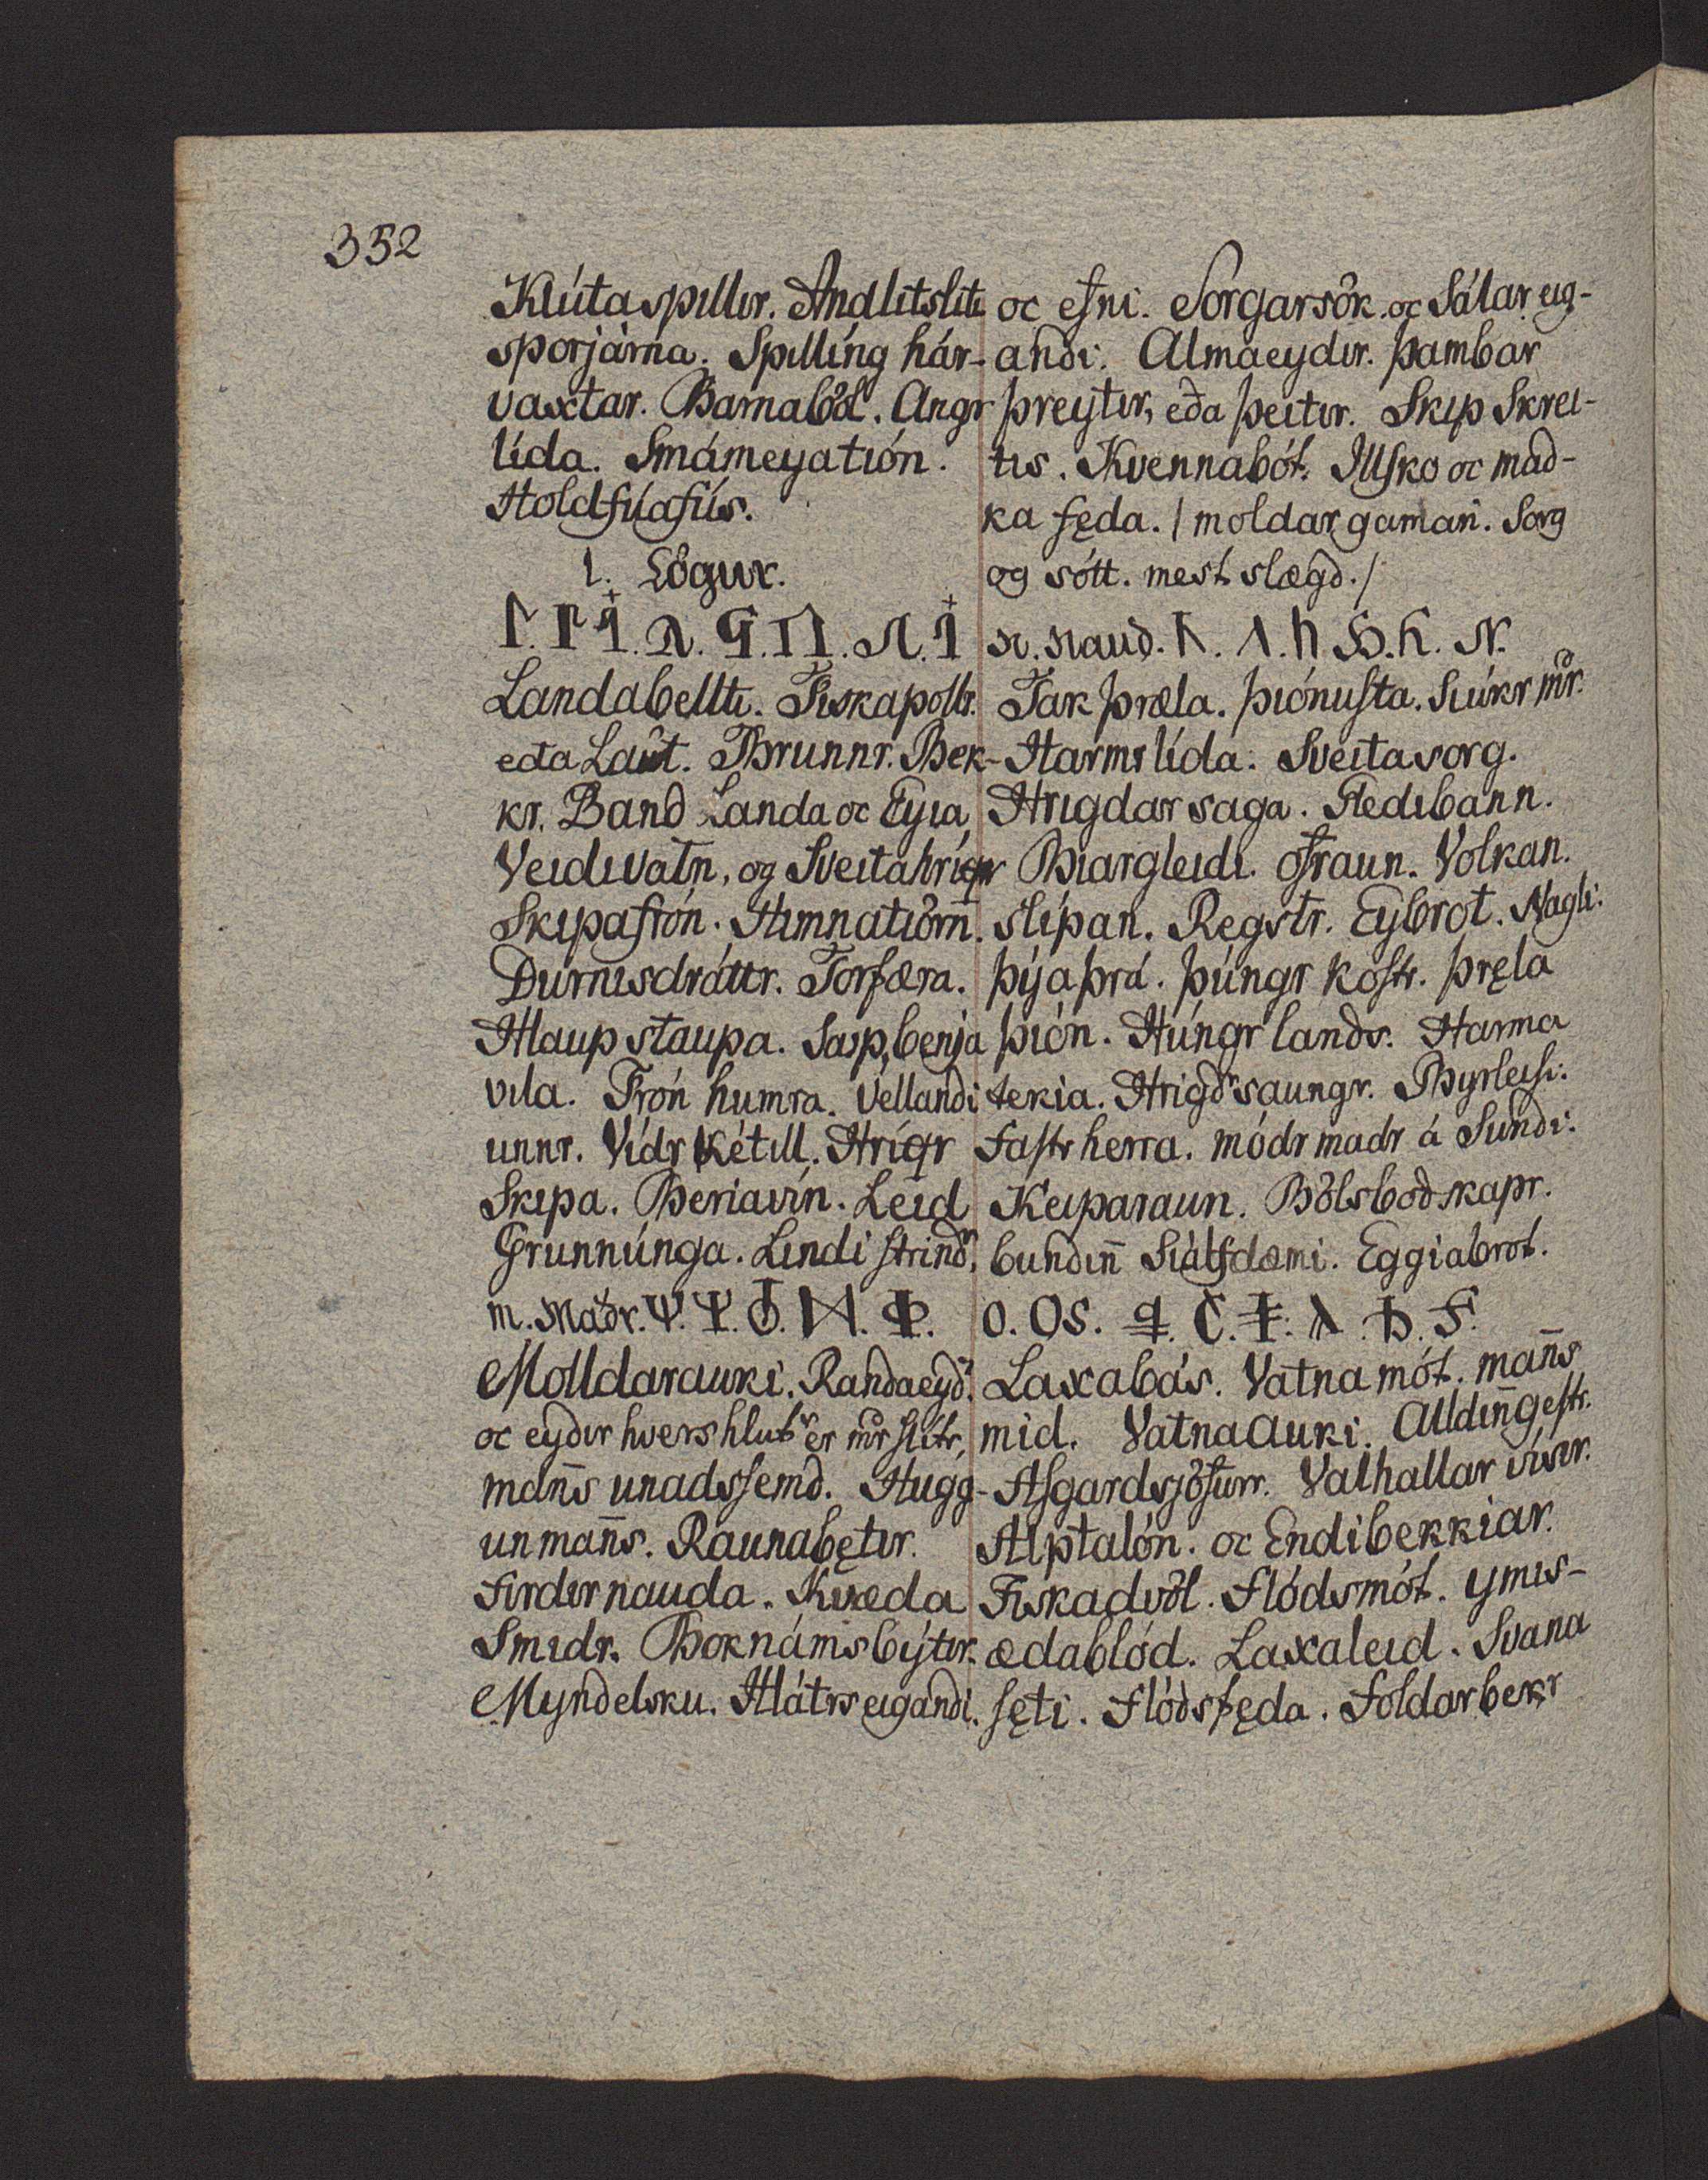 352
Klútaspillir. Andlitsliti
sporjárna. Spilling hár-
vaxtar. Barnaböl. Angr
lida. Smámeyatión.
Holdfúafús.
l. Lögur.
Landabellti. Fiskapollr.
eda Laut. Brunnr. Bek-
kr. Band Landa oc Eyia
Veidivatn, og Sveitahrígr
Skipafrón. Himnatiörn̄.
Durnisdráttr. Torfæra.
Hlaup staupa. benja
vila. Frón humra. Vellandi
unnr. Vídr kétill. Hrigr
Skipa. Beriavín. Leid
Grunnúnga. Lindi strindr.
m. Madr. ᛘ.
Molldarauki. Randaeydr.
oc eydir hvers hlutr er mr slitr,
man̄s unadssemd. Hugg-
un man̄s. Raunabętir.
Firdir nauda. Kvæda
Smidr. Boknáms býtir.
Myndelsku. Hlátrs eigandi.
oc efni. Sorgarsök oc Sálar eig-
andi. Almaeydir. Þambar
þreytir, eda þeitir. Skip Skrei-
tis. Kvennabót. Illsko oc mad-
ka fęda. / moldar gaman. Sorg
og sótt. mest slægd. /
n. naud.
Tak þræla. Þiónusta. Siúkr mr.
Harmr lida. Sveitasorg.
Hrigdar saga. Fledibann.
Biargleidi. ofraun. Volkan.
slípan. Regstr. Eybrot. Nagli.
þýjaþrá. þúngr kostr. þręla
þión. Húngr lands. Harma
tekia. Hrigdr saungr. Byrleisi.
Fastr herra. módr madr á Sundi.
Keiparaun. Bölsbodskapr.
bundin̄ Siálfdæmi. Eggiabrot.
o. Os.
Laxabás. Vatna mót. man̄s
mid. Vatnaauki. Alldin̄gestr.
Asgardsjöfurr. Valhallar vísir.
Alptalón. oc Endibekkiar.
Fiskadvöl. Flódsmót. ymis-
ædablód. Laxaleid. Svana
sęti. Flódsfęda. Foldarbekr